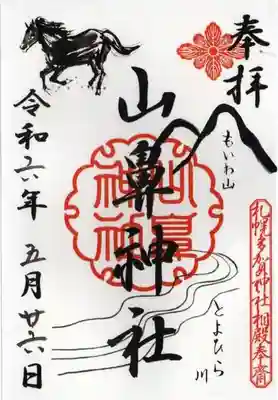 奉拝
もいわ山
山鼻神社
とよひら川
札幌多賀神社相殿奉斎
令和六年五月廿六日
山鼻神社